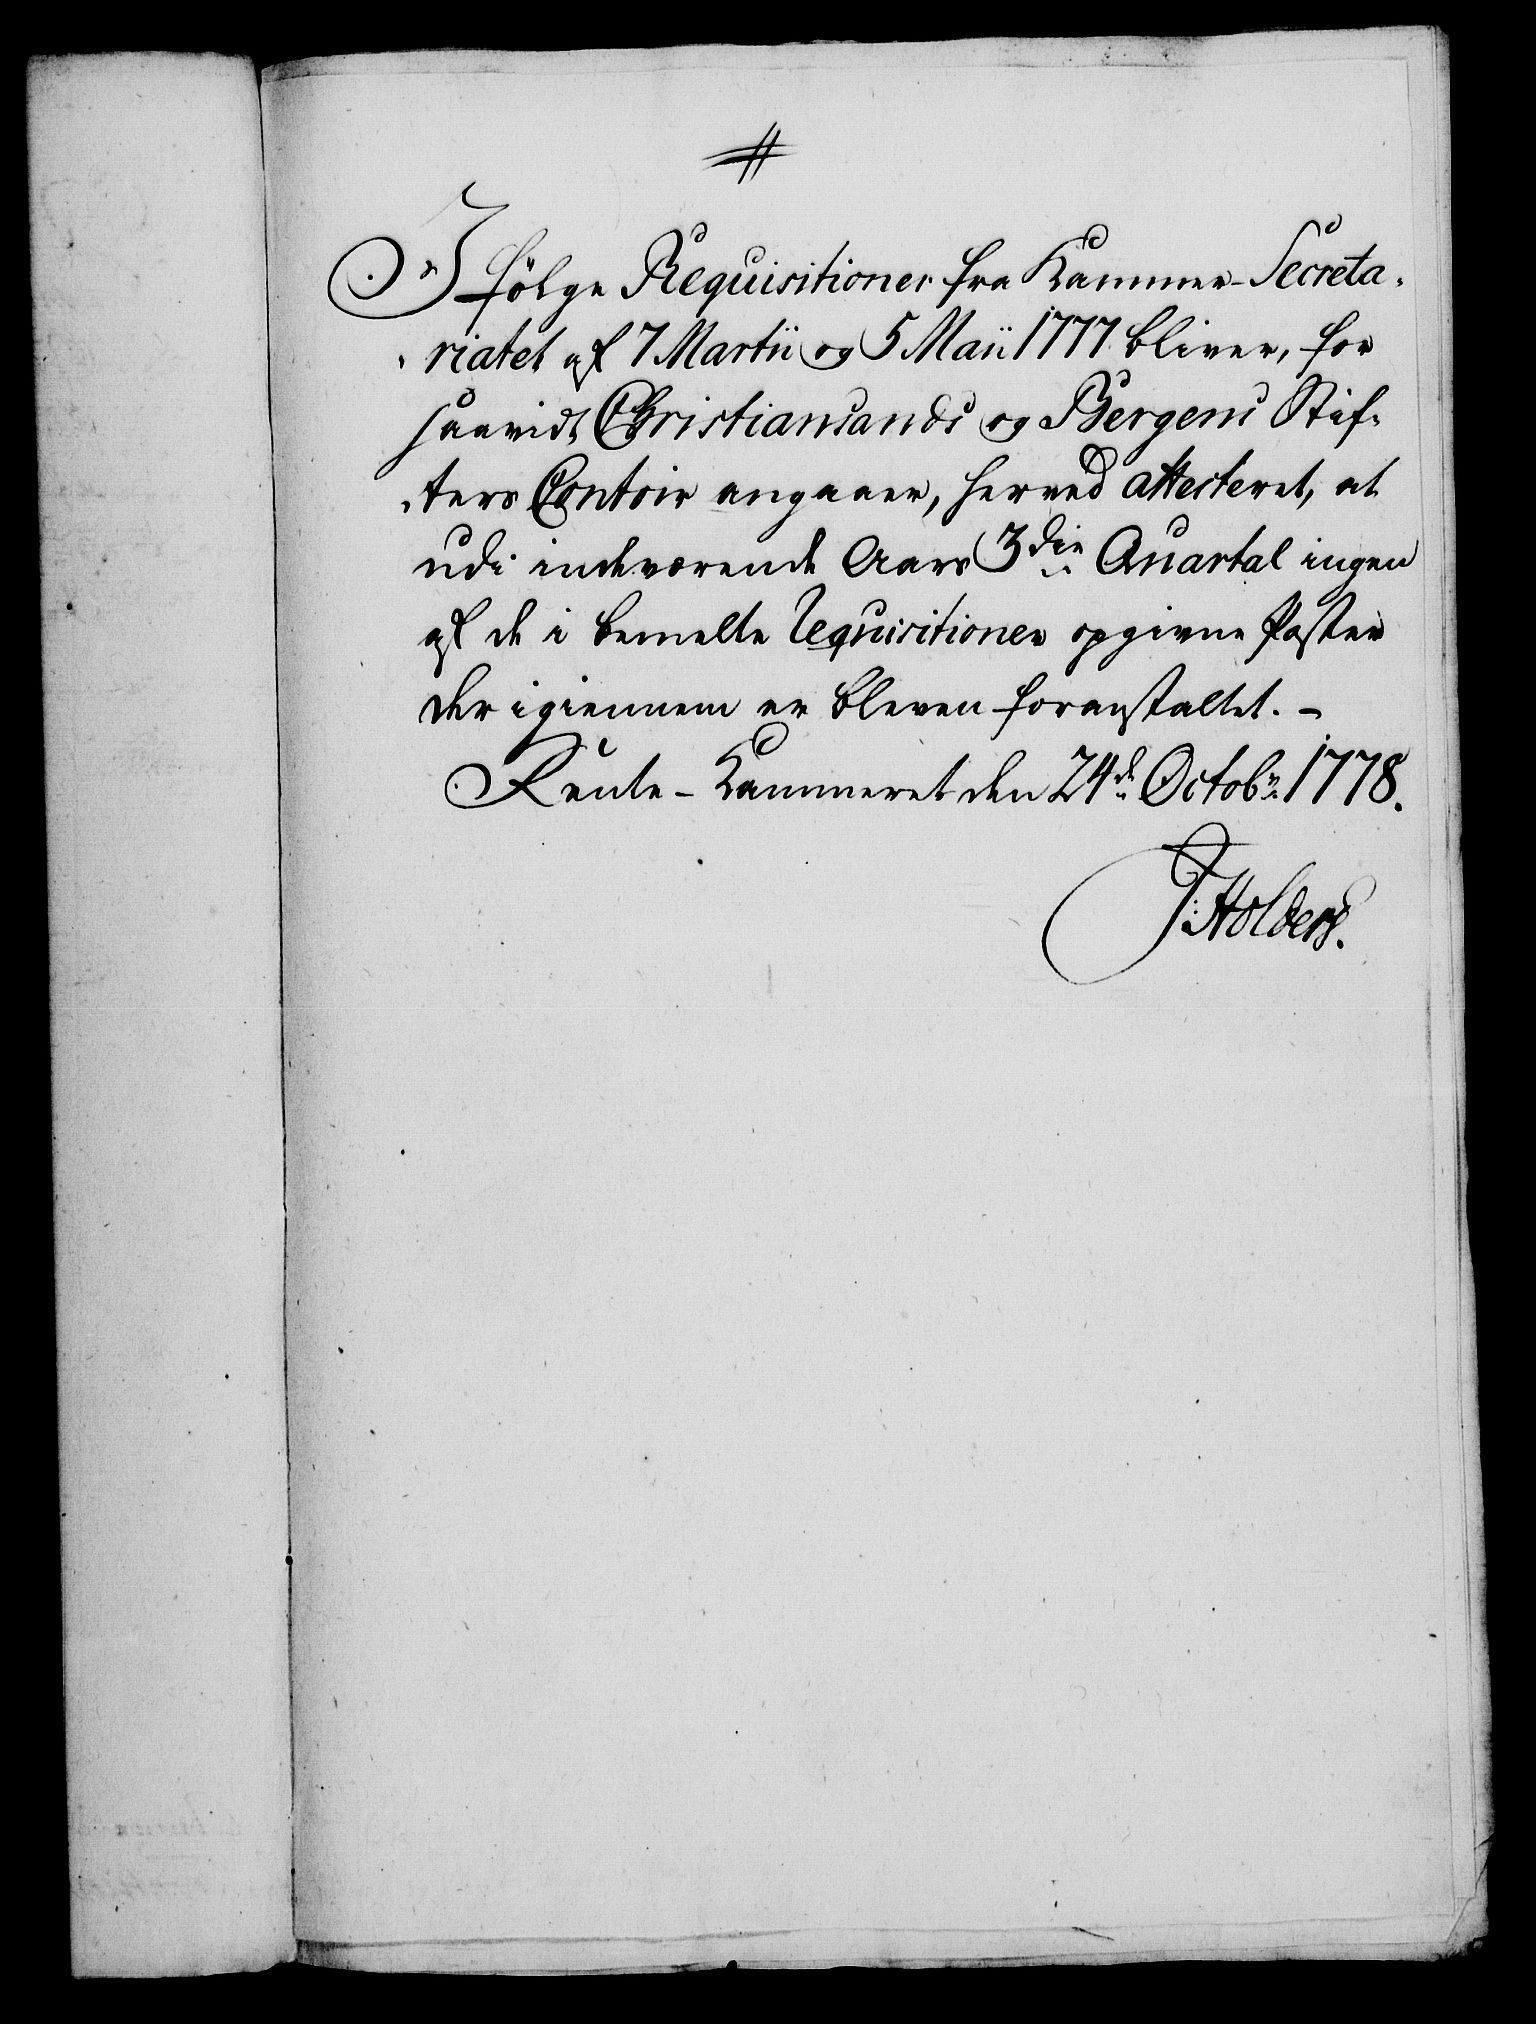 I følge Requisitioner fra Kammer-Secreta-
riatet af 7 Martii og 5 Maii 1777 bliver, for
saavidt Christiansands og Bergens Stif-
ters Contoir angaaer, herved attesteret, at
udi indeværende Aars 3die Quartal ingen
af de i bemelte Requisitioner opgivne Poster
der igiennem er bleven foranstaltet. -
Rente-Kammeret den 24de Octobr 1778.
J: Holders.